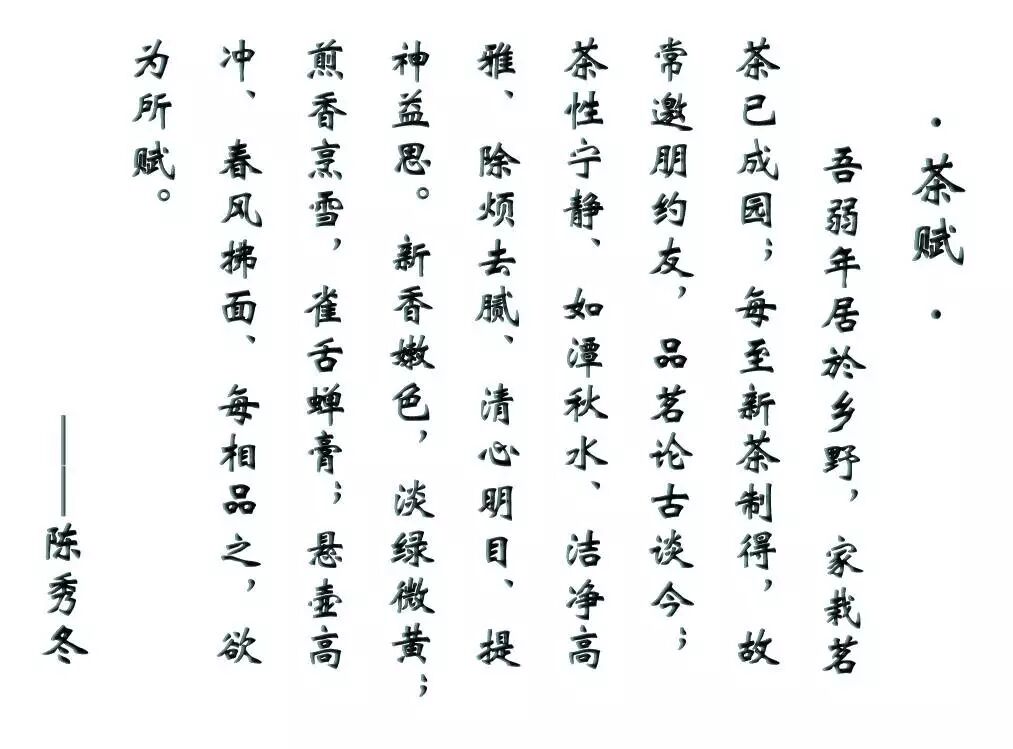 ·茶赋·
吾弱年居於乡野，家栽茗
茶已成园；每至新茶制得，故
常邀朋约友，品茗论古谈今；
茶性宁静、如潭秋水、洁净高
雅、除烦去腻、清心明目、提
神益思。新香嫩色，淡绿微黄；
煎香烹雪，雀舌蝉膏；悬壶高
冲、春风拂面、每相品之，欲
为所赋。
——陈秀冬